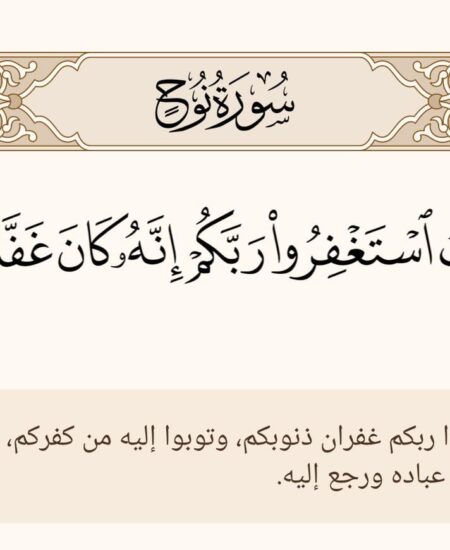 سُورَةُ نُوحٍ
ٱسْتَغْفِرُوا۟ رَبَّكُمْ إِنَّهُۥ كَانَ
ربكم غفران ذنوبكم، وتوبوا إليه من كفركم،
عباده ورجع إليه.